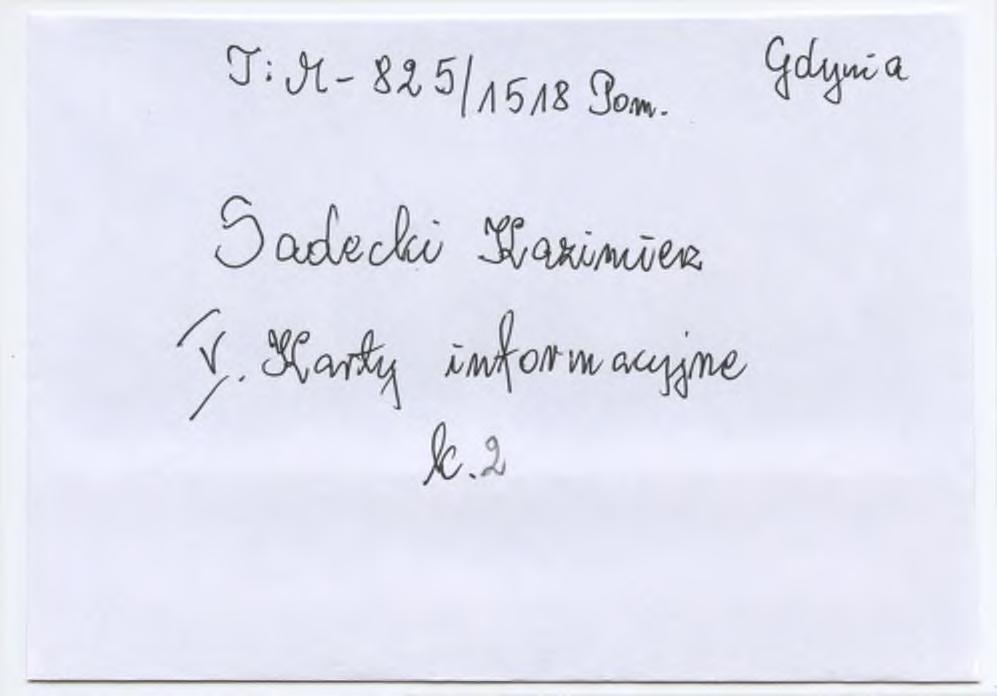 T: M-825/1518 Pom. Gdynia
Sadecki Kazimierz
V. Karty informacyjne
k. 2